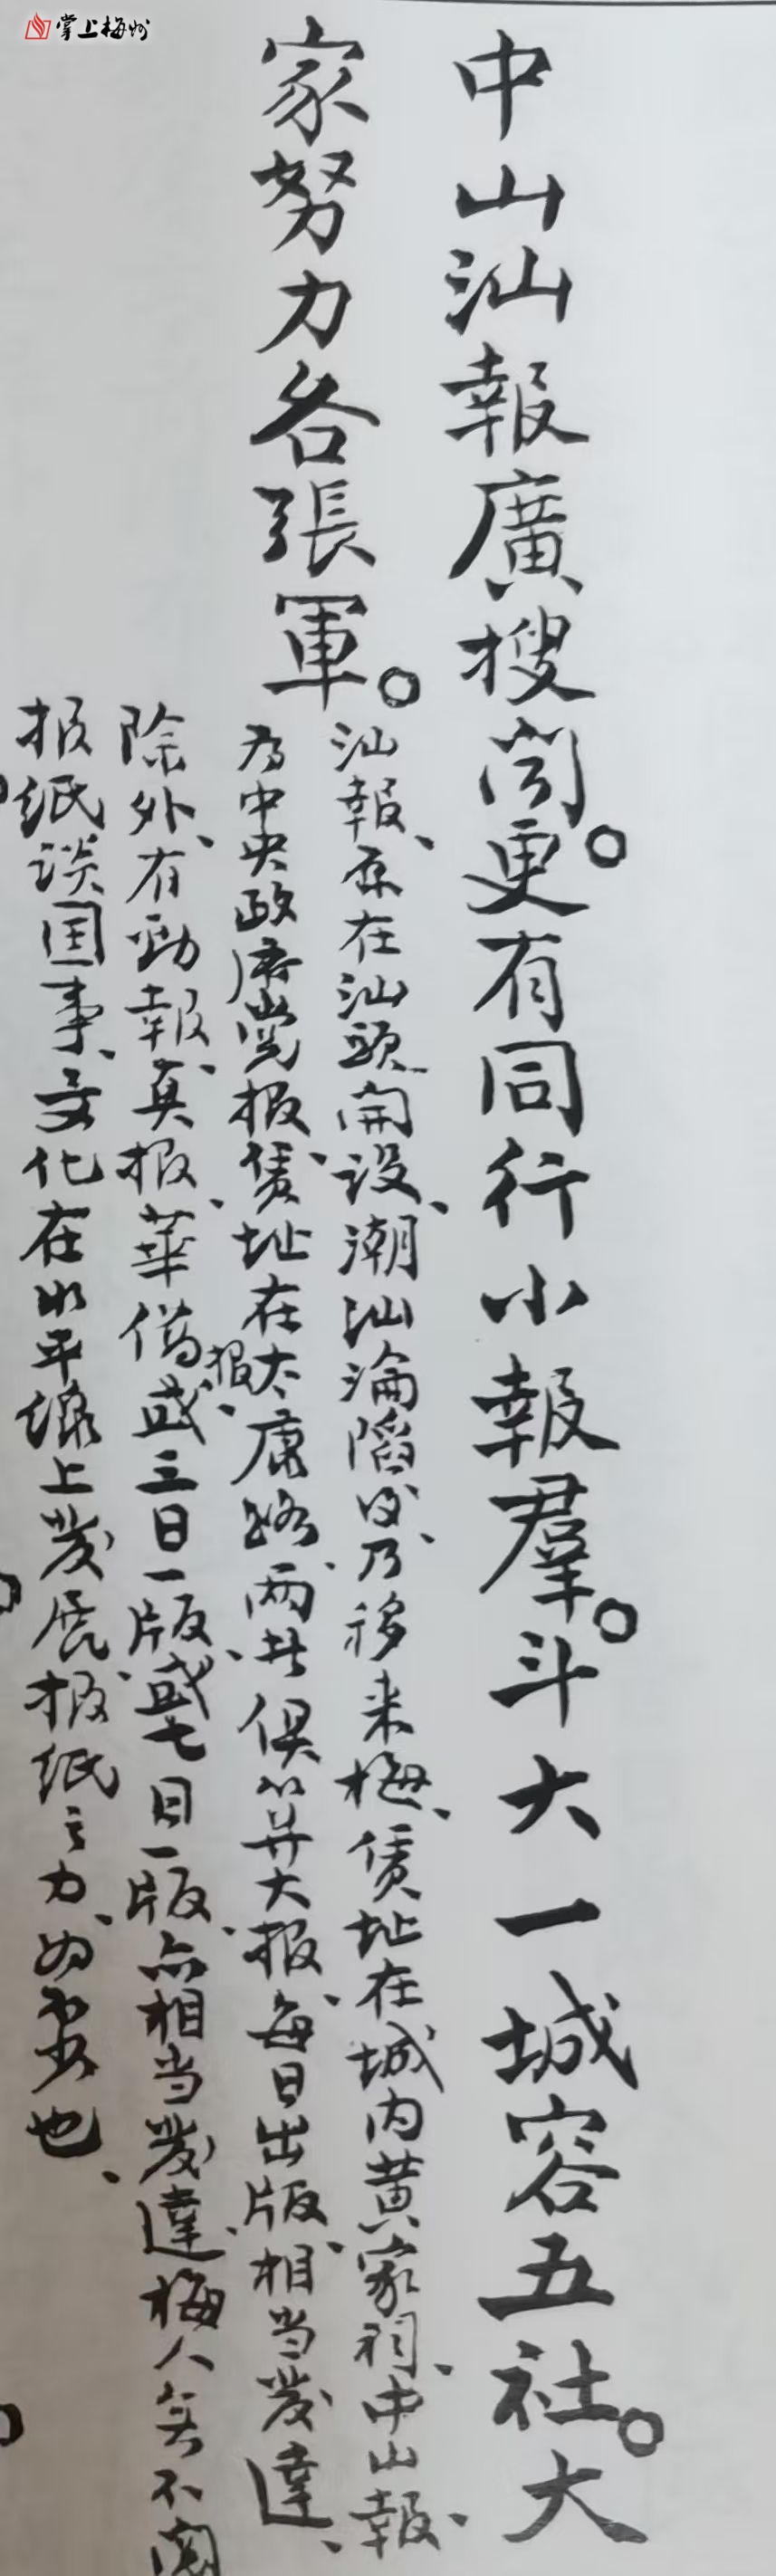 掌上梅州
中山汕報廣搜聞。更有同行小報羣。斗大一城容五社。大
家努力各張軍。
汕報、原在汕頭開設、潮汕淪陷後、乃移来梅、赁址在城内黄家祠、中山報、
为中央政府党报、赁址在太康路、两者俱算大报、每日出版、相当发達、
除外、有勁報、真报、華僑报、或三日一版、或七日一版、亦相当发達、梅人無不阅
报纸、谈国事、文化在水平缐上、发展报纸之力、为不少也、